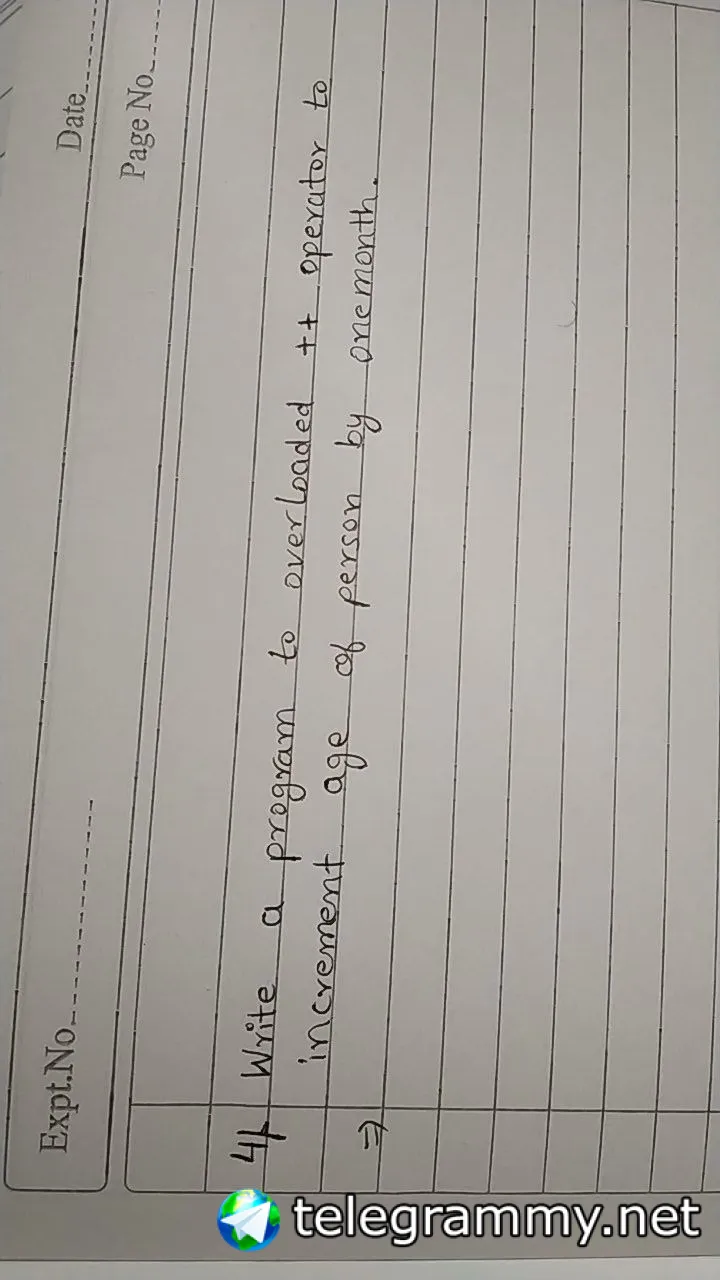 Expt.No.
Date
Page No.
4) Write a program to overloaded ++ operator to
increment age of person by onemonth.
⇒
telegrammy.net